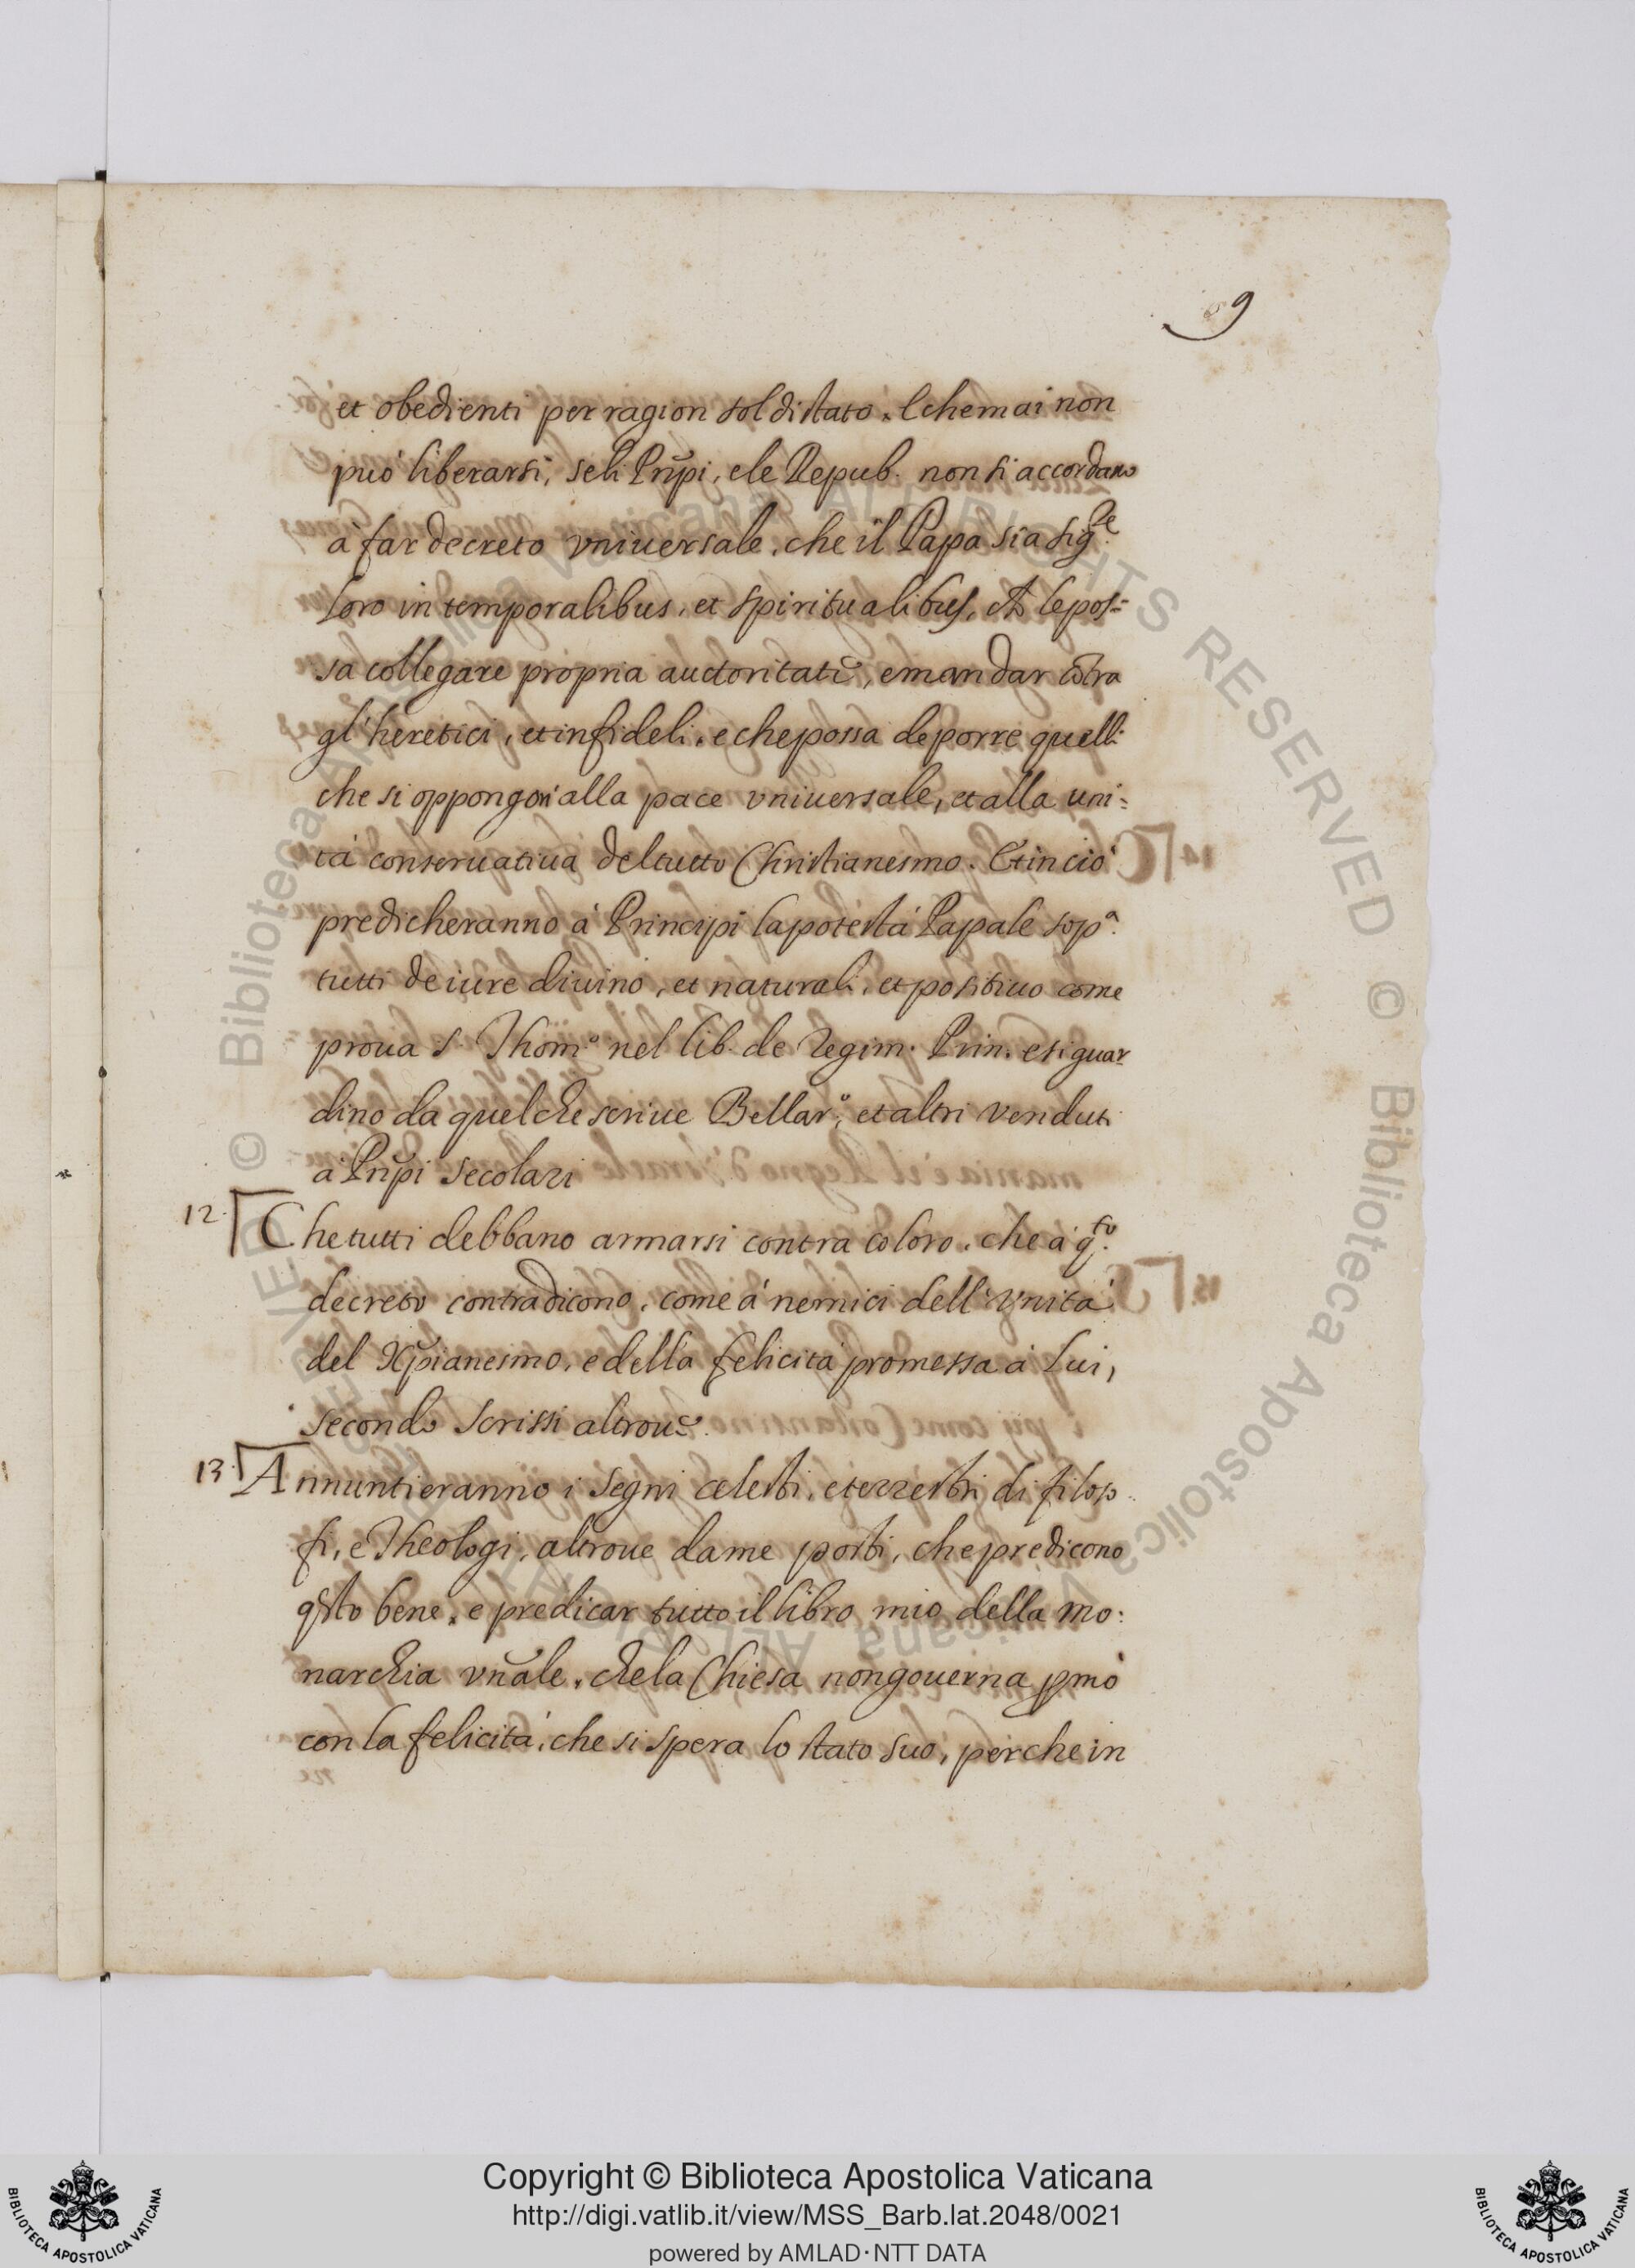 9
et obedienti per ragion sol di stato. E che mai non
può liberarsi, se li Prñpi, e le Repub. non si accordano
à far decreto vniuersale, che il Papa sia sig.re
loro in temporalibus, et spiritualibus, et le pos=
sa collegare propria auctoritate, e mandar cõtra
gl'heretici, et infideli. e che possa deporre quelli
che si oppongon' alla pace vniuersale, et alla uni=
tà conseruatiua del tutto Christianesmo. Et in ciò
predicheranno à Principi la potestà Papale sop.a
tutti de iure diuino, et naturali, et positiuo come
proua S. Thom.o nel lib. de Regim. Prin. e si guar=
dino da quel che scriue Bellar.o, et altri venduti
à Prñpi secolari
12. Che tutti debbano armarsi contra coloro, che à q.to
decreto contradicono, come à nemici dell'Vnità
del Xp̃ianesmo, e della felicità promessa à Lui,
secondo scrissi altroue.
13. Annuntieranno i segni celesti, e terrestri di filoso
fi, e Theologi, altroue da me posti, che predicono
q̃sto bene, e predicar tutto il libro mio della mo:
narchia vñale, che la Chiesa non gouerna pmò
con la felicità, che si spera lo stato suo, perche in
Copyright © Biblioteca Apostolica Vaticana
http://digi.vatlib.it/view/MSS_Barb.lat.2048/0021
powered by AMLAD·NTT DATA
BIBLIOTECA APOSTOLICA VATICANA
BIBLIOTECA APOSTOLICA VATICANA